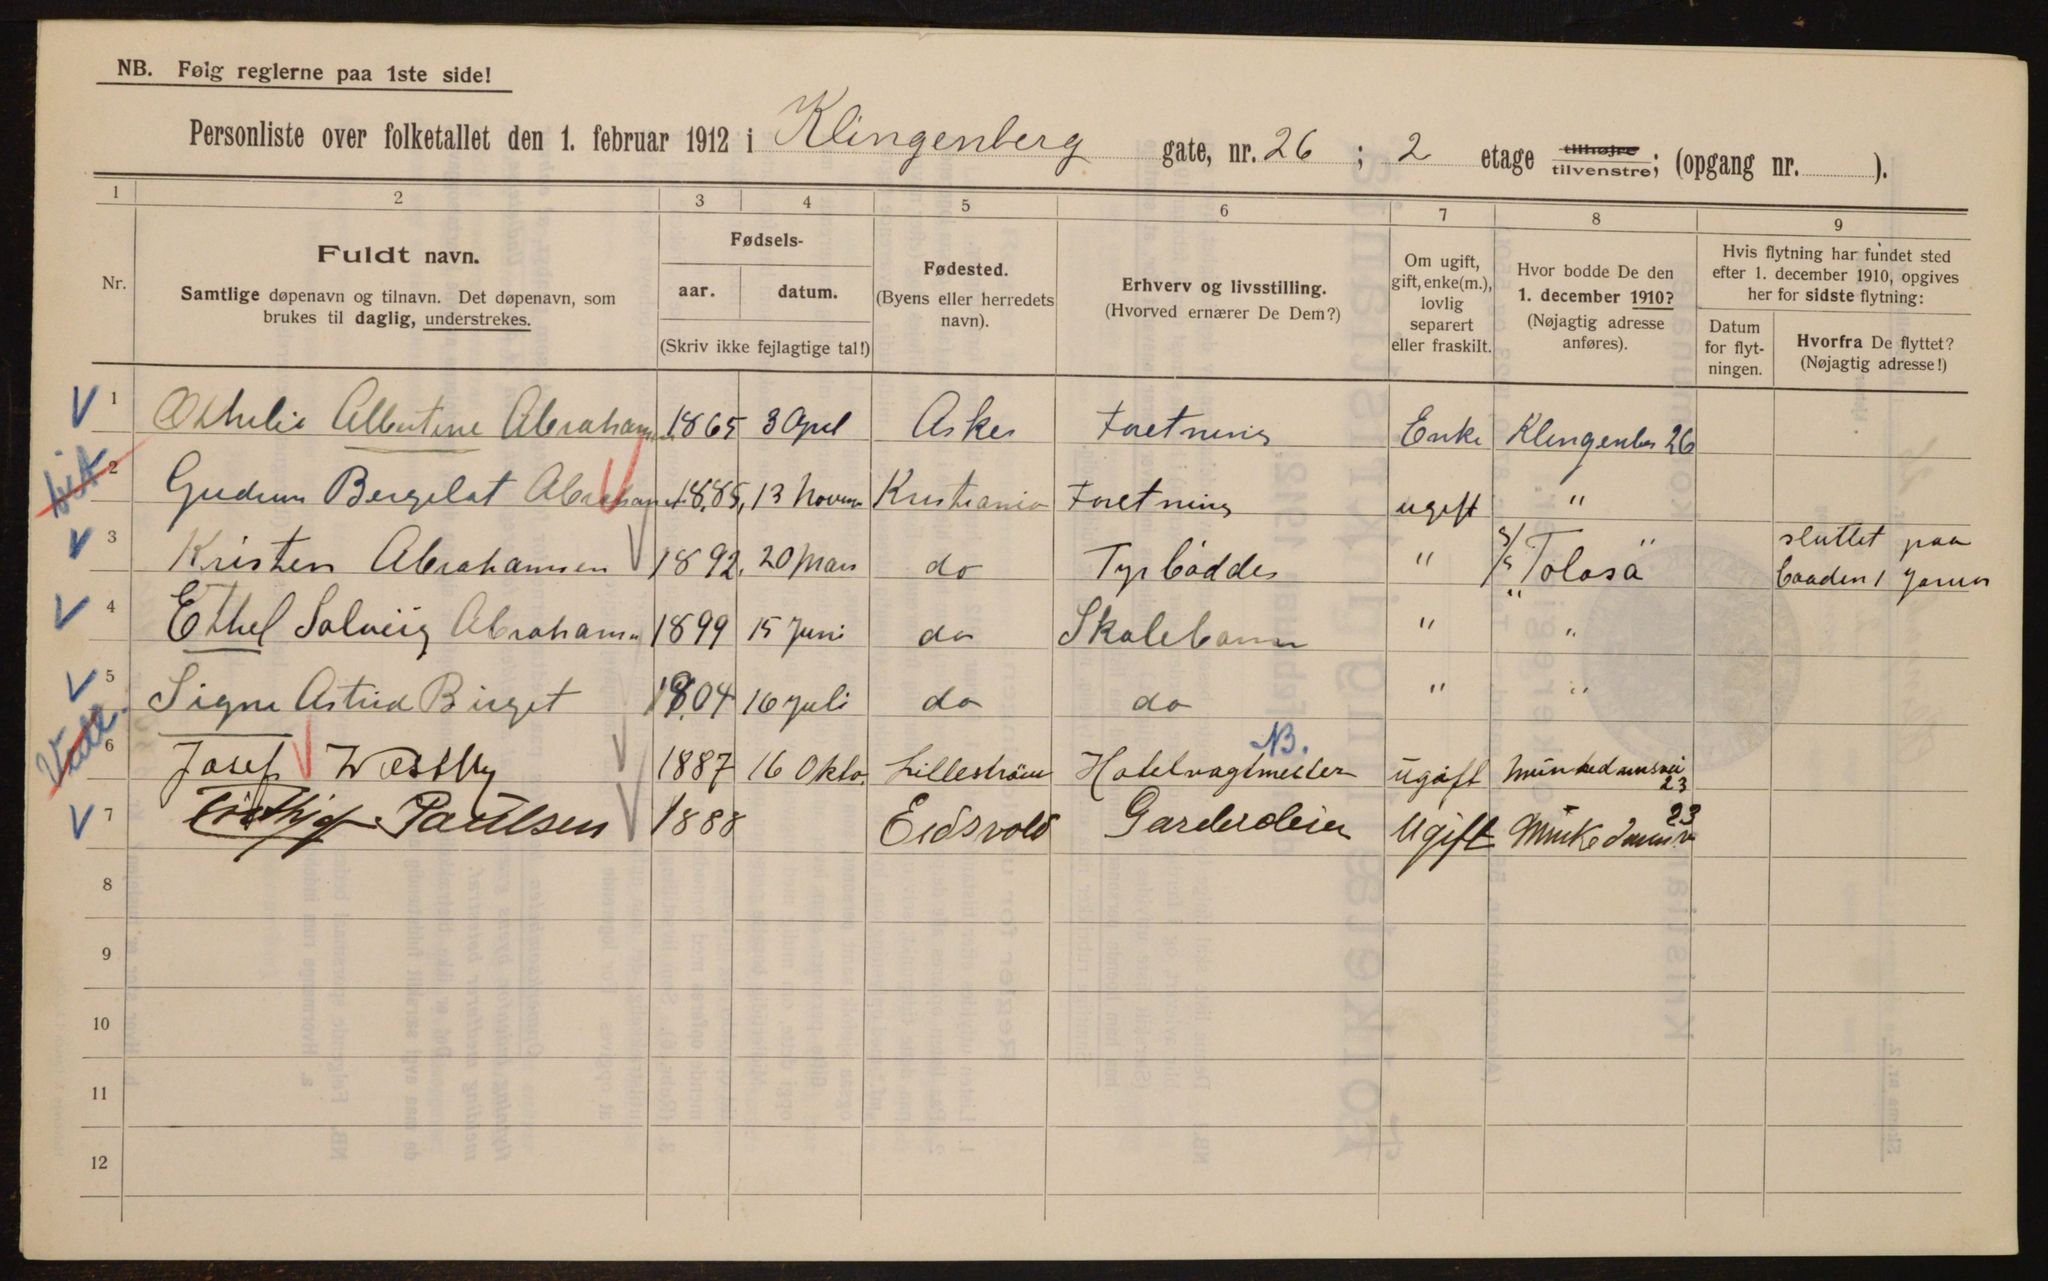 NB. Følg reglerne paa 1ste side!
Personliste over folketallet den 1. februar 1912 i Klingenberg gate, nr. 26 ; 2 etage tilhøjre tilvenstre; (opgang nr. ).
1 2 3 4 5 6 7 8 9
Nr.
Fuldt navn.
Samtlige døpenavn og tilnavn. Det døpenavn, som
brukes til daglig, understrekes.
Fødsels-
aar. datum.
(Skriv ikke fejlagtige tal!)
Fødested.
(Byens eller herredets
navn).
Erhverv og livsstilling.
(Hvorved ernærer De Dem?)
Om ugift,
gift, enke(m.),
lovlig
separert
eller fraskilt.
Hvor bodde De den
1. december 1910?
(Nøjagtig adresse
anføres).
Hvis flytning har fundet sted
efter 1. december 1910, opgives
her for sidste flytning:
Datum
for flyt-
ningen.
Hvorfra De flyttet?
(Nøjagtig adresse!)
1 Othelie Albertine Abrahamsen 1865 3 April Asker Foretning Enke Klingenber 26
2 Gudrun Bergelot Abrahamsen 1885, 13 Novem Kristiania Foretning ugift "
3 Kristen Abrahamsen 1892, 20 Mars do " S/S Tolosa sluttet paa
baaden 1 Januar
4 Ethel Solveig Abrahamsen 1899 15 Juni do Skolebarn " "
5 Signe Astrid Birget 1904 16 Juli do do " "
NB.
6 Josef Westby 1887 16 Okto. Lillestrøm Hotelvagtmester ugift Munkedamsvei
23
7 Paulsen 1888 Eidsvold Ugift Munkedamsv 23
8
9
10
11
12